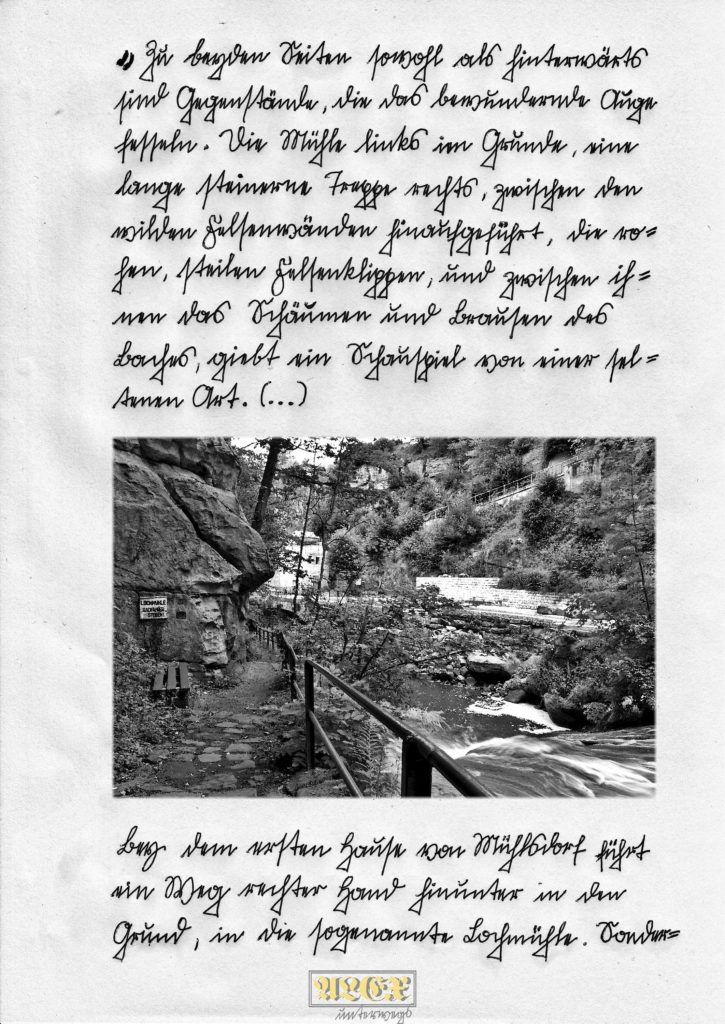 „ Zu beyden Seiten sowohl als hinterwärts
sind Gegenstände, die das bewundernde Auge
fesseln. Die Mühle links im Grunde, eine
lange steinerne Treppe rechts, zwischen den
wilden Felsenwänden hinaufgeführt, die ro=
hen, steilen Felsenklippen, und zwischen ih=
nen das Schäumen und Brausen des
Baches, giebt ein Schauspiel von einer sel=
tenen Art. (...)
LOCHMÜHLE
Bey dem ersten Hause von Mühlsdorf führt
ein Weg rechter Hand hinunter in den
Grund, in die sogenannte Lochmühle. Sonder=
ALEX
unterwegs